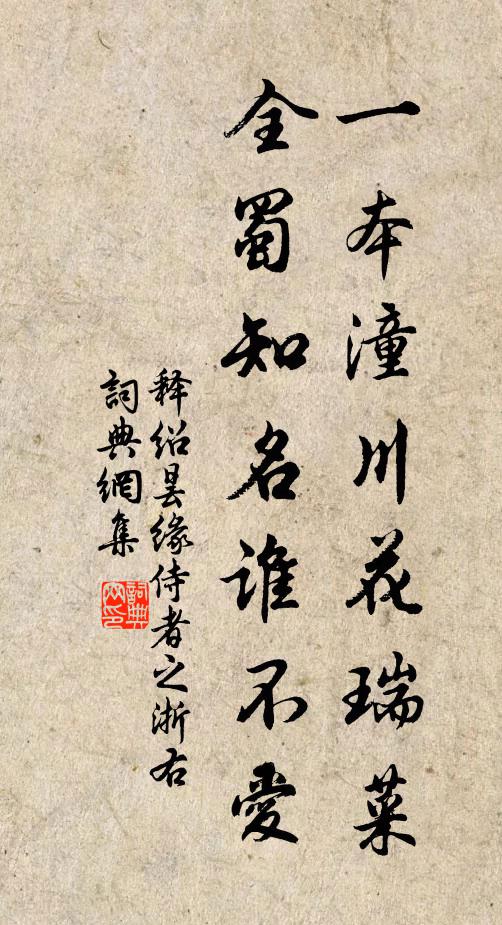 一本潼川花瑞菜
全蜀知名谁不愛
释绍昙缘侍者之浙右
詞典網集
詞典網印